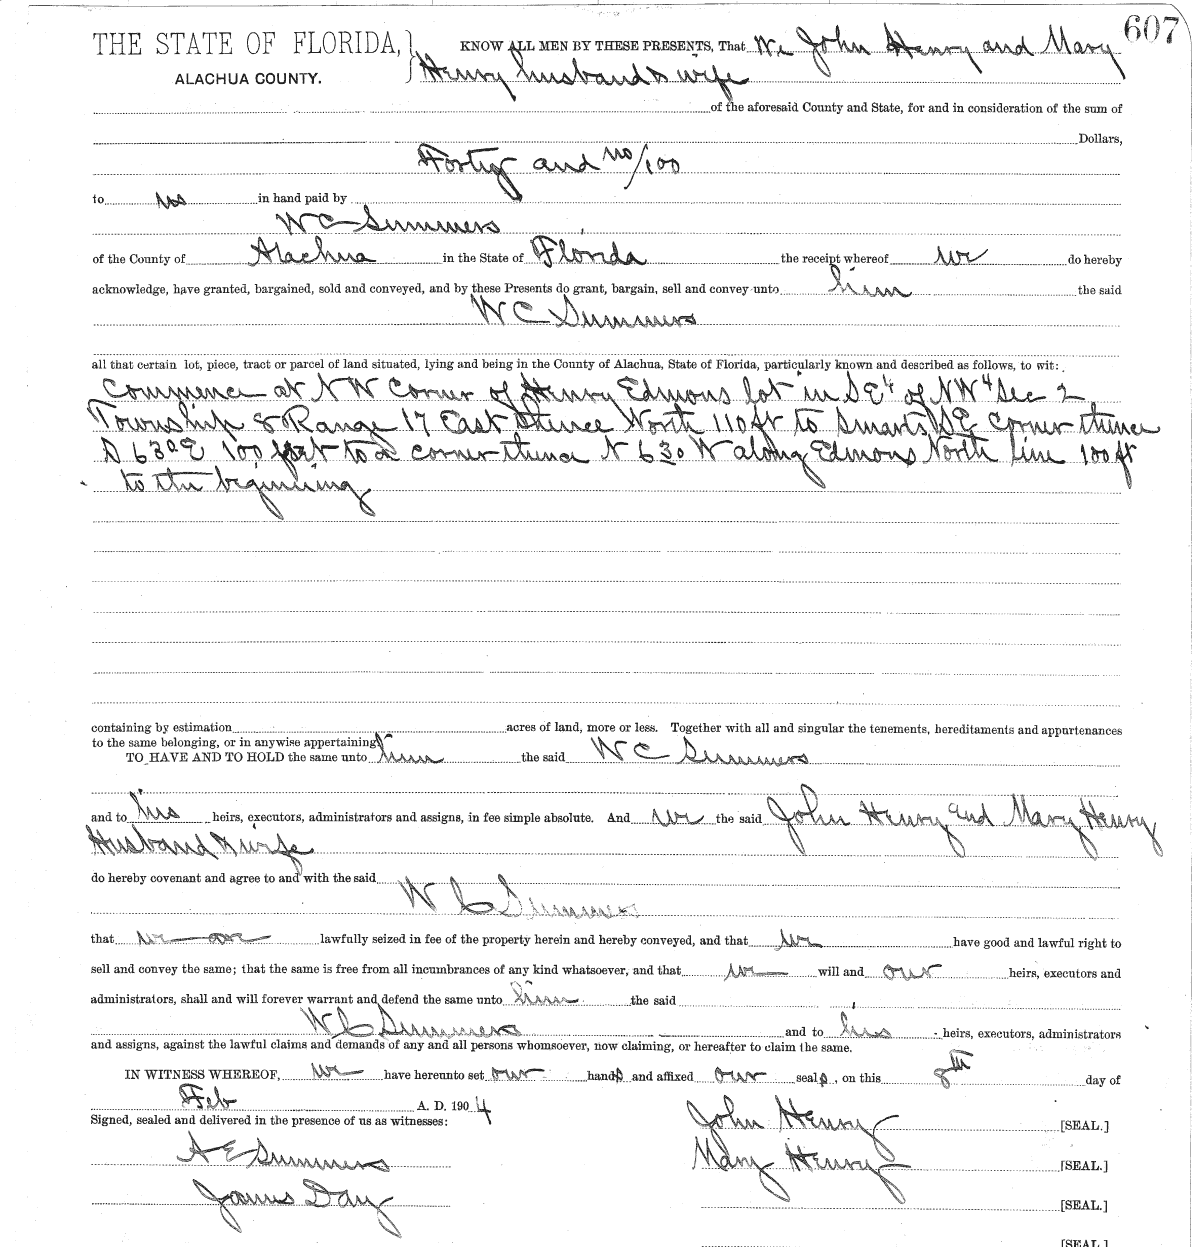 607
THE STATE OF FLORIDA,
ALACHUA COUNTY.
KNOW ALL MEN BY THESE PRESENTS, That We John Henry and Mary
Henry husband & wife
of the aforesaid County and State, for and in consideration of the sum of
Dollars,
Forty and no/100
to us in hand paid by
W C Summers
of the County of Alachua in the State of Florida the receipt whereof we do hereby
acknowledge, have granted, bargained, sold and conveyed, and by these Presents do grant, bargain, sell and convey unto him the said
W C Summers
all that certain lot, piece, tract or parcel of land situated, lying and being in the County of Alachua, State of Florida, particularly known and described as follows, to wit:
Commence at NW Corner of Henry Edmons lot in SE 4 of NW 4 Sec 2
Township 8 Range 17 East thence North 110 ft to Smarts SE Corner thence
S 63° E 100 feet to a corner thence N 63° W along Edmons North line 100 ft
to the beginning
containing by estimation acres of land, more or less. Together with all and singular the tenements, hereditaments and appurtenances
to the same belonging, or in anywise appertaining
TO HAVE AND TO HOLD the same unto him the said W C Summers
and to his heirs, executors, administrators and assigns, in fee simple absolute. And we the said John Henry and Mary Henry
Husband & wife
do hereby covenant and agree to and with the said
W C Summers
that we are lawfully seized in fee of the property herein and hereby conveyed, and that we have good and lawful right to
sell and convey the same; that the same is free from all incumbrances of any kind whatsoever, and that we will and our heirs, executors and
administrators, shall and will forever warrant and defend the same unto him the said
W C Summers and to his heirs, executors, administrators
and assigns, against the lawful claims and demands of any and all persons whomsoever, now claiming, or hereafter to claim the same.
IN WITNESS WHEREOF, we have hereunto set our hands and affixed our seals, on this 8th day of
Feb A. D. 1904
Signed, sealed and delivered in the presence of us as witnesses:
John Henry [SEAL.]
A E Summers
Mary Henry [SEAL.]
James Day
[SEAL.]
[SEAL.]